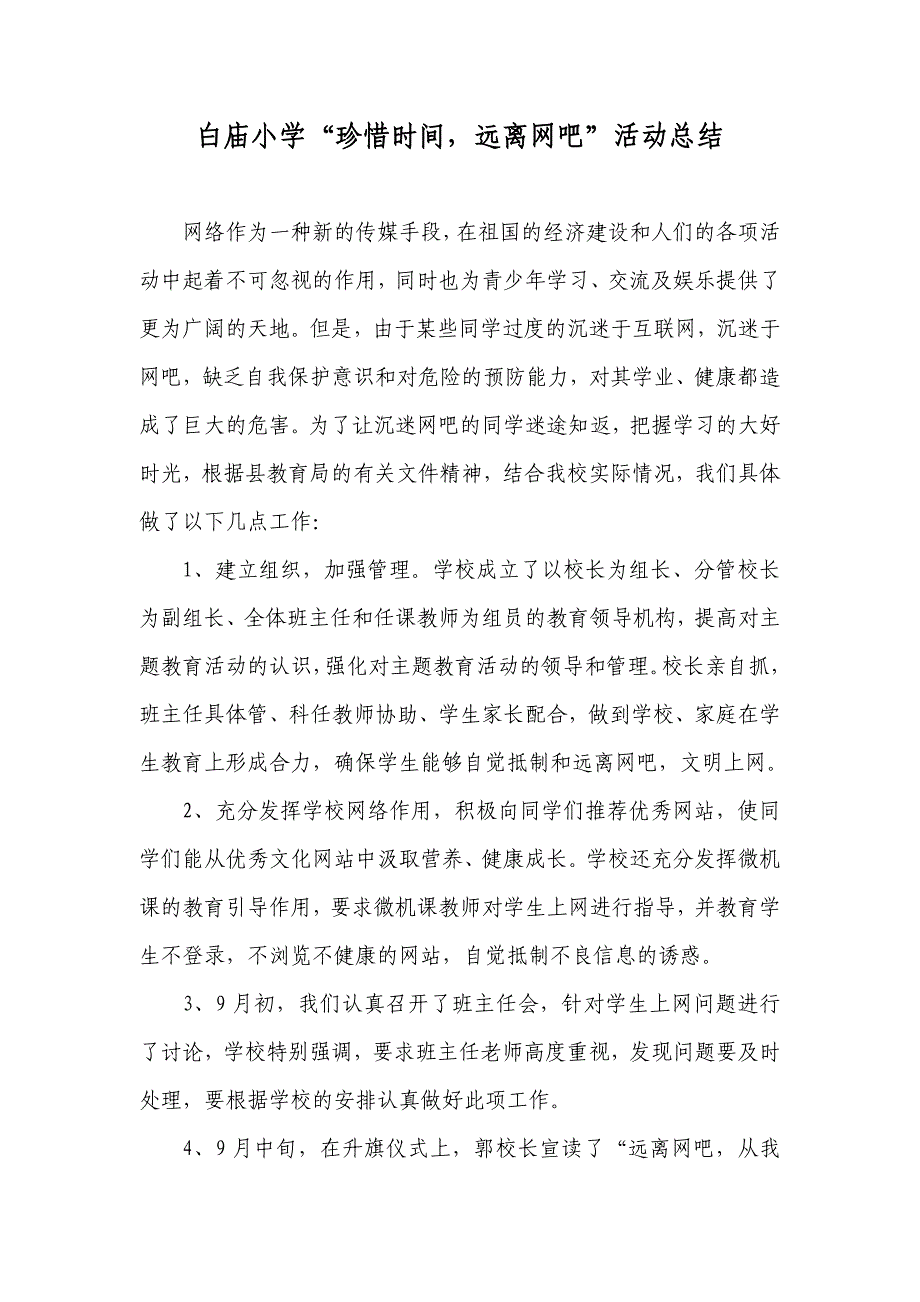 白庙小学“珍惜时间，远离网吧”活动总结
网络作为一种新的传媒手段，在祖国的经济建设和人们的各项活
动中起着不可忽视的作用，同时也为青少年学习、交流及娱乐提供了
更为广阔的天地。但是，由于某些同学过度的沉迷于互联网，沉迷于
网吧，缺乏自我保护意识和对危险的预防能力，对其学业、健康都造
成了巨大的危害。为了让沉迷网吧的同学迷途知返，把握学习的大好
时光，根据县教育局的有关文件精神，结合我校实际情况，我们具体
做了以下几点工作：
1、建立组织，加强管理。学校成立了以校长为组长、分管校长
为副组长、全体班主任和任课教师为组员的教育领导机构，提高对主
题教育活动的认识，强化对主题教育活动的领导和管理。校长亲自抓，
班主任具体管、科任教师协助、学生家长配合，做到学校、家庭在学
生教育上形成合力，确保学生能够自觉抵制和远离网吧，文明上网。
2、充分发挥学校网络作用，积极向同学们推荐优秀网站，使同
学们能从优秀文化网站中汲取营养、健康成长。学校还充分发挥微机
课的教育引导作用，要求微机课教师对学生上网进行指导，并教育学
生不登录，不浏览不健康的网站，自觉抵制不良信息的诱惑。
3、9 月初，我们认真召开了班主任会，针对学生上网问题进行
了讨论，学校特别强调，要求班主任老师高度重视，发现问题要及时
处理，要根据学校的安排认真做好此项工作。
4、9 月中旬，在升旗仪式上，郭校长宣读了“远离网吧，从我